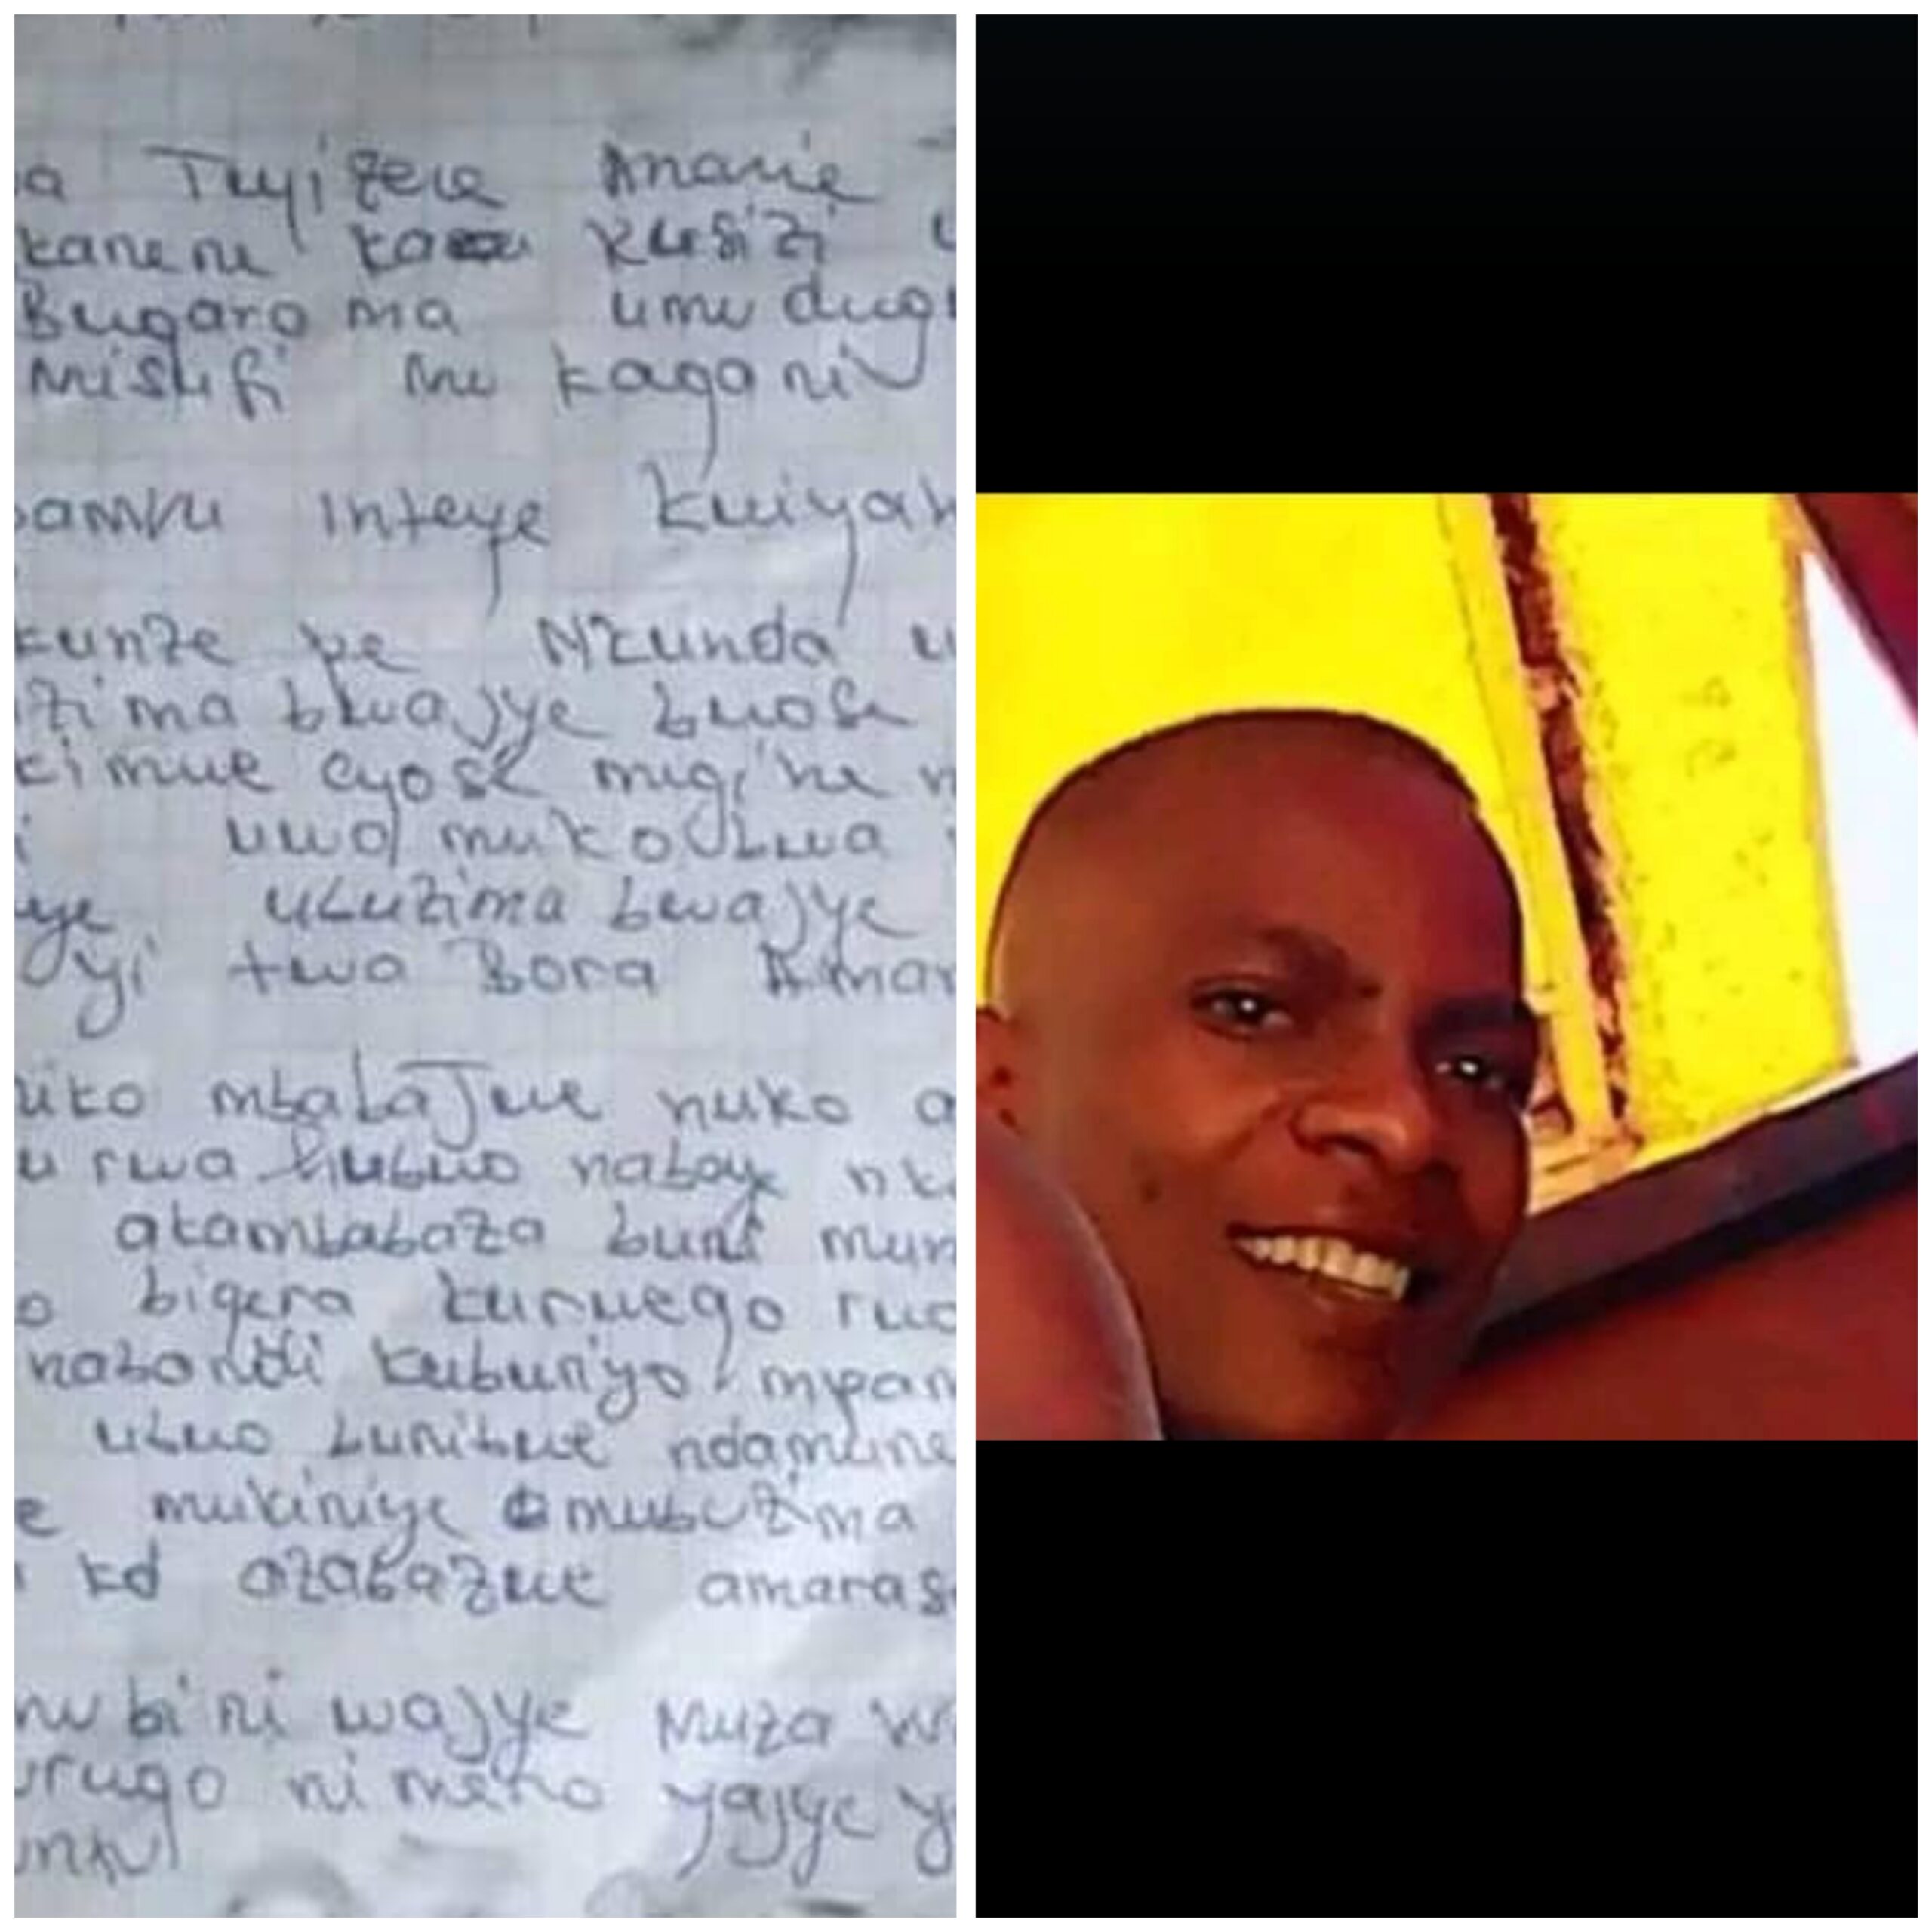 a Tuyizere Anarie
kanene ka Rusizi
Bugaroma umudugu
misufi mu kagari
bampu inteye kwiyah
kunze pe Nkunda u
zima bwajye bwose
kimwe cyose migihe n
i uwo mukobwa
ye ubuzima bwajye
yi twa Bora Amar
uko mbabajwe nuko a
u rwa hubwo nabaye nk
atambabaza bune mun
o bigera kurwego rwo
nabonki kuburiyo mpam
ubwo bunibwe ndamune
e mukiniye mubuzima
ko azabazwe amaras
mubiri wajye Muza w
urugo ni mero yajye y
untu